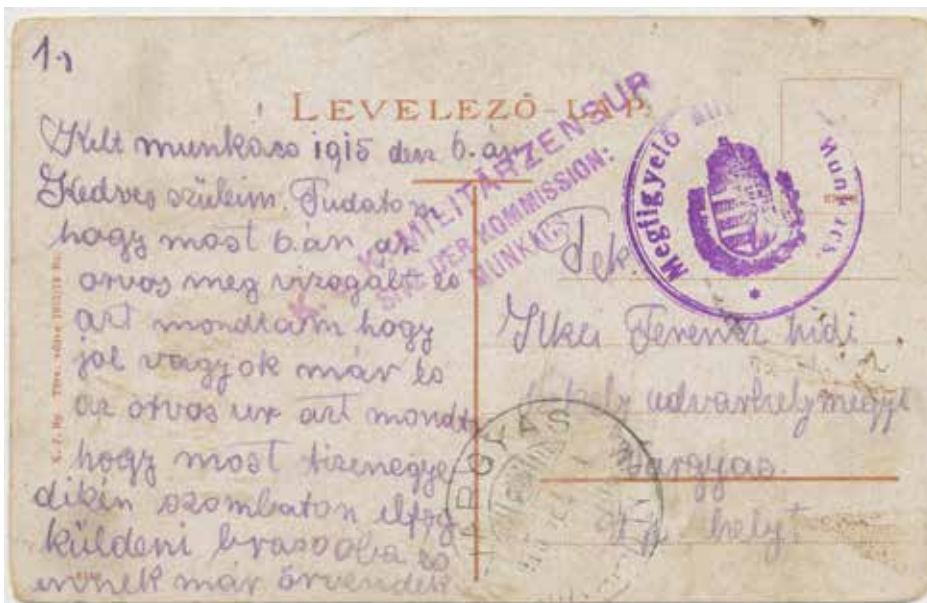 1.)
LEVELEZŐ-LAP.
Kelt munkács 1915 dez 6.án
Kedves szüleim. Tudatom
hogy most 6.án az
orvos meg vizsgált és
azt mondtam hogy
jol vagyok már és
az orvos ur azt mondta
hogy most tizenegye
dikén szombaton elfog
küldeni brassoba és
ennek már örvendek
K. u. K. MILITÄRZENSUR
DER KOMMISSION:
MUNKÁCS
Megfigyelő
Munkács.
*
Tek.
Ilkei Ferencz hidi
udvarhelymegye
Vargyas.
helyt
VARGYAS